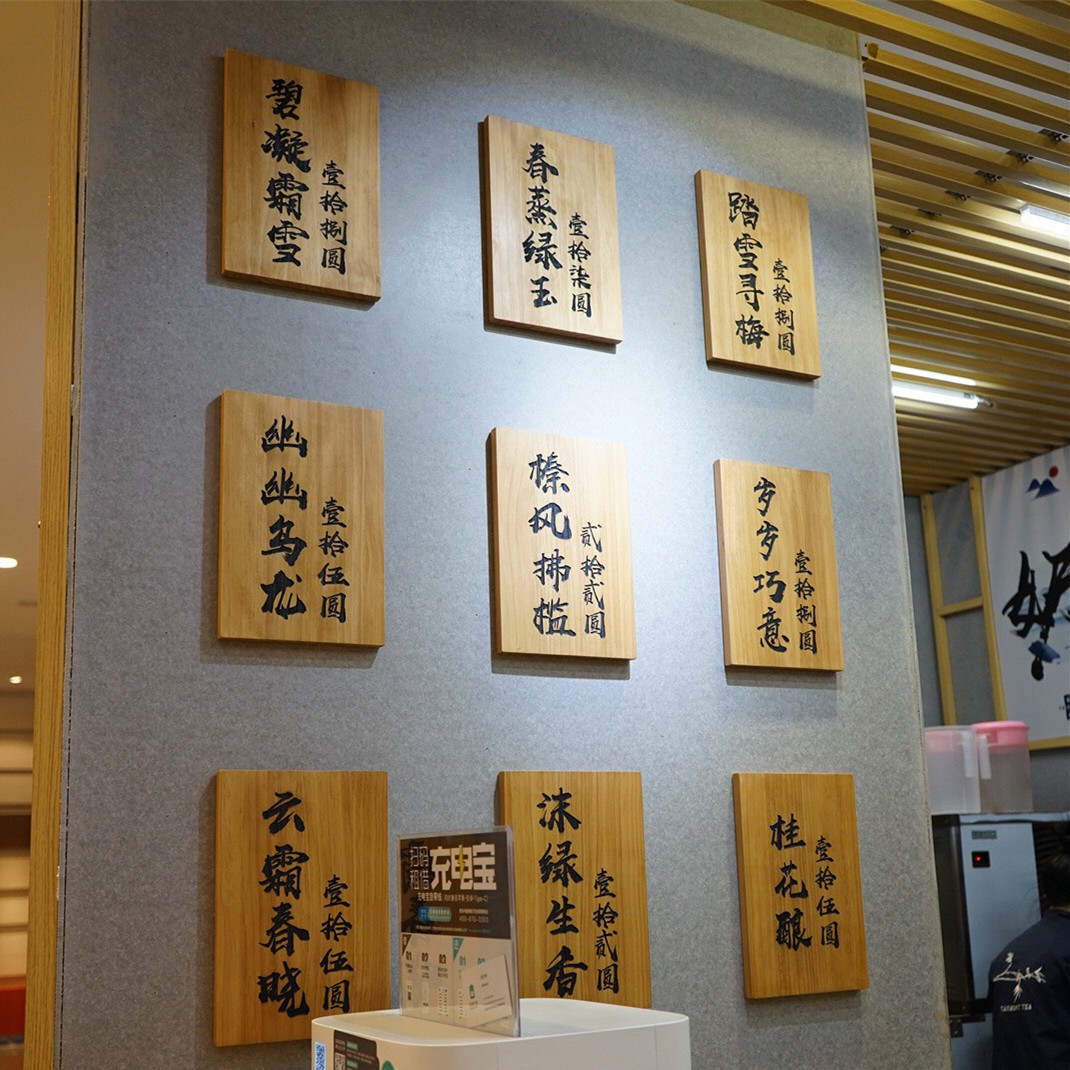 碧凝霜雪
壹拾捌圆
春蒸绿玉
壹拾柒圆
踏雪寻梅
壹拾捌圆
幽幽乌龙
壹拾伍圆
榛风拂槛
贰拾贰圆
岁岁巧意
壹拾捌圆
云霜春晓
壹拾伍圆
沫绿生香
壹拾贰圆
桂花酿
壹拾伍圆
扫码
租借
充电宝